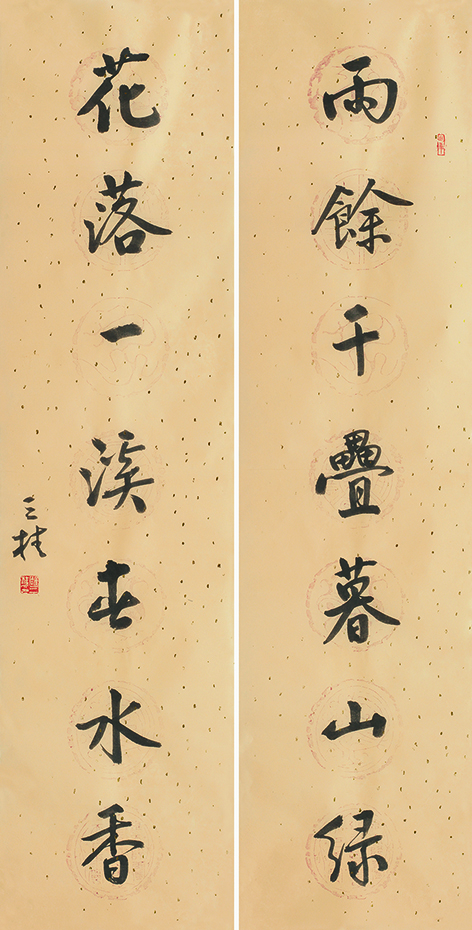 雨餘千疊暮山綠
花落一溪春水香
三桂